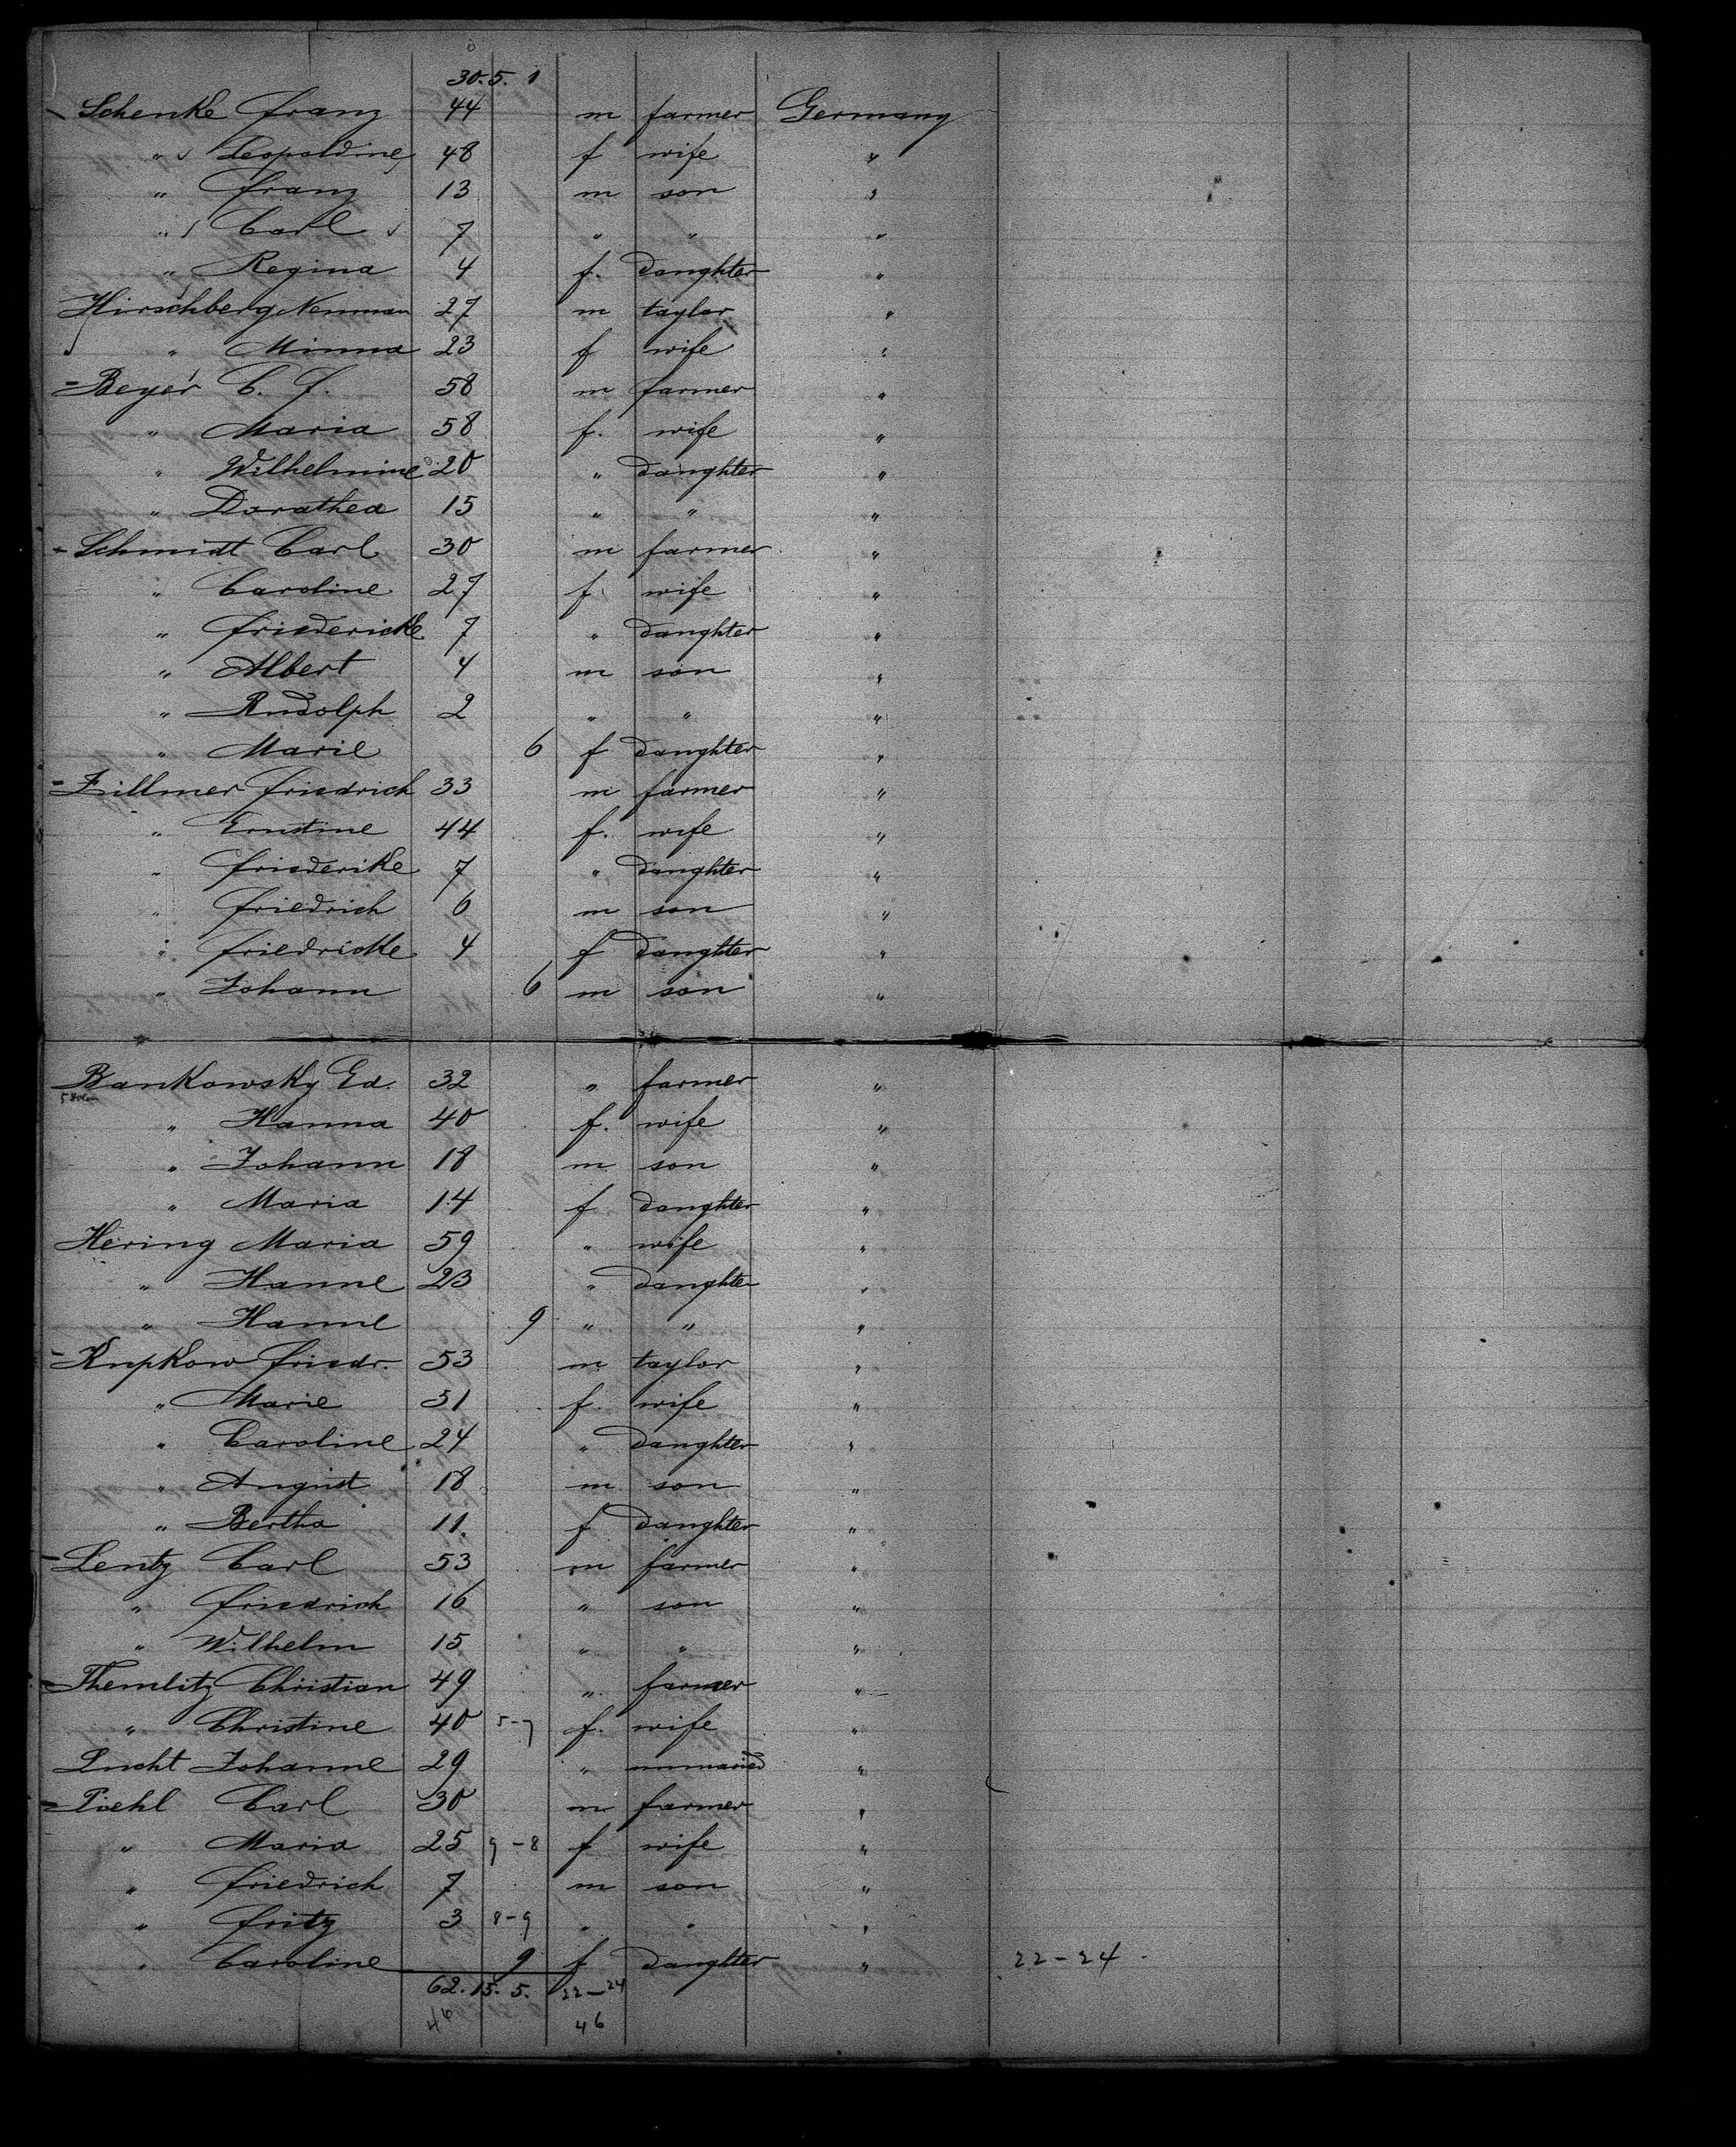 30. 5. 1
Schenke Franz 44 m farmer Germany
" Leopoldine 48 f wife "
" Franz 13 m son "
" Carl 7 " " "
" Regina 4 f. daughter "
Hirschberg Neuman 27 m taylor "
" Minna 23 f wife "
Beyer C. F. 58 m farmer "
" Maria 58 f. wife "
" Wilhelmine 20 " daughter "
" Dorathea 15 " " "
Schmidt Carl 30 m farmer "
" Caroline 27 f wife "
" Friederickke 7 " daughter "
" Albert 4 m son "
" Rudolph 2 " " "
" Marie 6 f daughter "
Zillmer Friedrich 33 m farmer "
" Ernstine 44 f. wife "
" Friederike 7 " daughter "
" Friedrich 6 m son "
" Friedricke 4 f daughter "
" Johann 6 m son "
Bankowsky Ed. 32 " farmer "
" Hanna 40 f. wife "
" Johann 18 m son "
" Maria 14 f daughter "
Hering Maria 59 " wife "
" Hanne 23 " daughter "
" Hanne 9 " " "
Kupkow Friedr. 53 m taylor "
" Marie 51 f. wife "
" Caroline 24 " daughter "
" August 18 m son "
" Bertha 11. f daughter "
Lentz Carl 53 m farmer "
" Friedrich 16 " son "
" Wilhelm 15 " " "
Themlitz Christian 49 " farmer "
" Christine 40 5-7 f. wife "
Lucht Johanne 29 " unmaried "
Piehl Carl 30 m farmer "
" Maria 25 9-8 f wife "
" Friedrich 7 m son "
" Fritz 3 8-9 " " "
" Caroline 9 f daughter " 22-24
62. 15. 5. 22-24
46 46